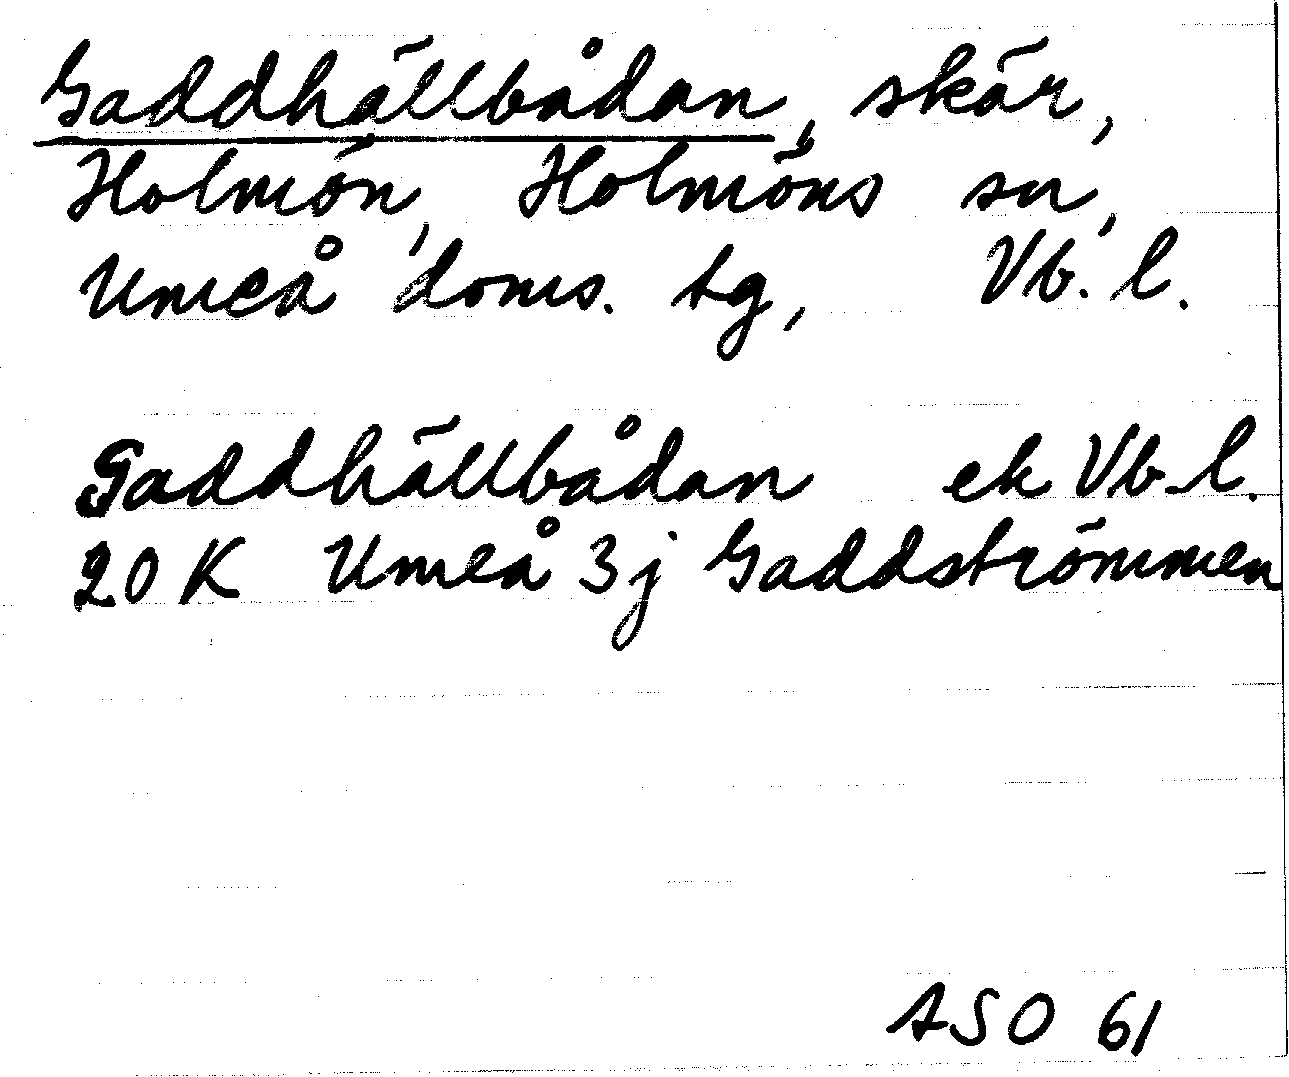 Gaddhällbådan, skär,
Holmön, Holmöns sn,
Umeå doms. tg, Vb. l.
Gaddhällbådan ek Vb. l.
20 K Umeå 3j Gaddströmmen
ASO 61